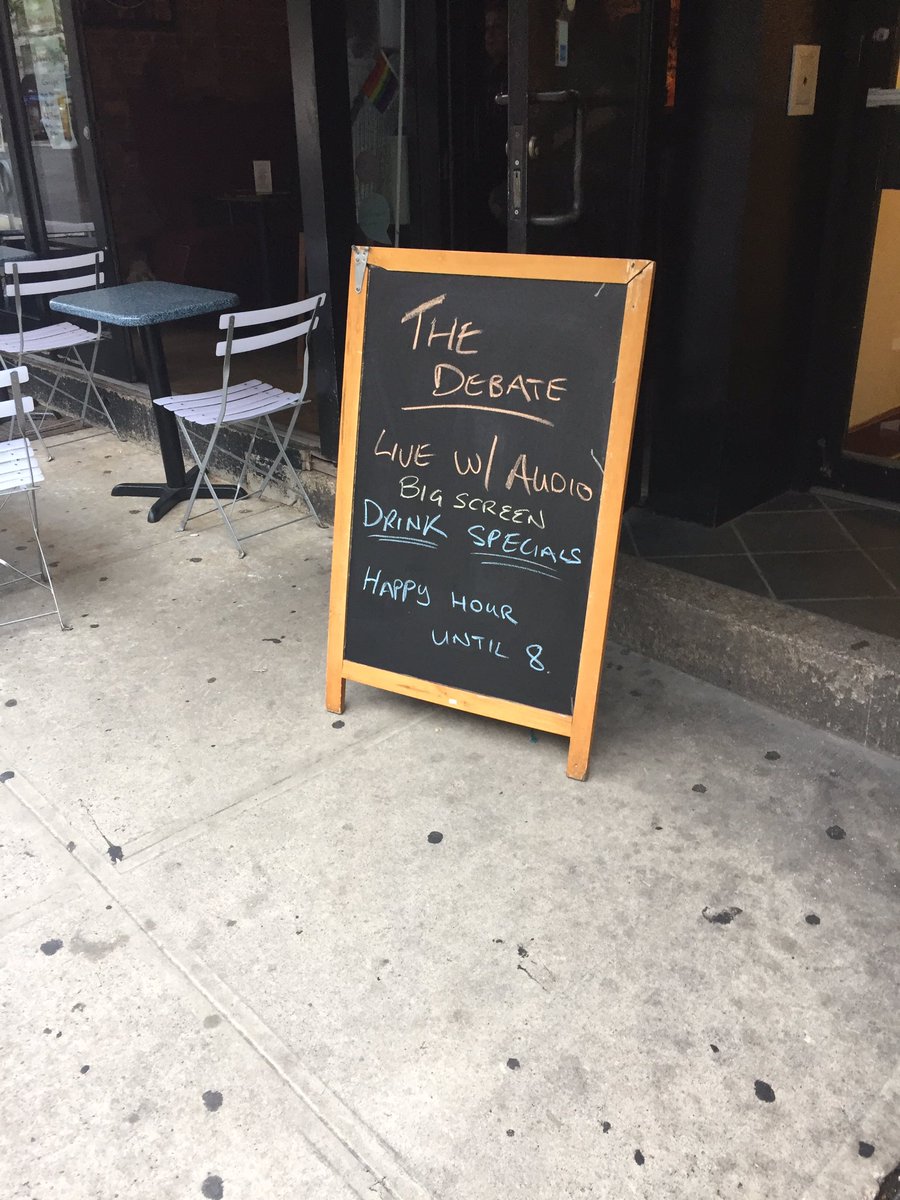 THE
DEBATE
LIVE W/ AUDIO
BIG SCREEN
DRINK SPECIALS
HAPPY HOUR
UNTIL 8.